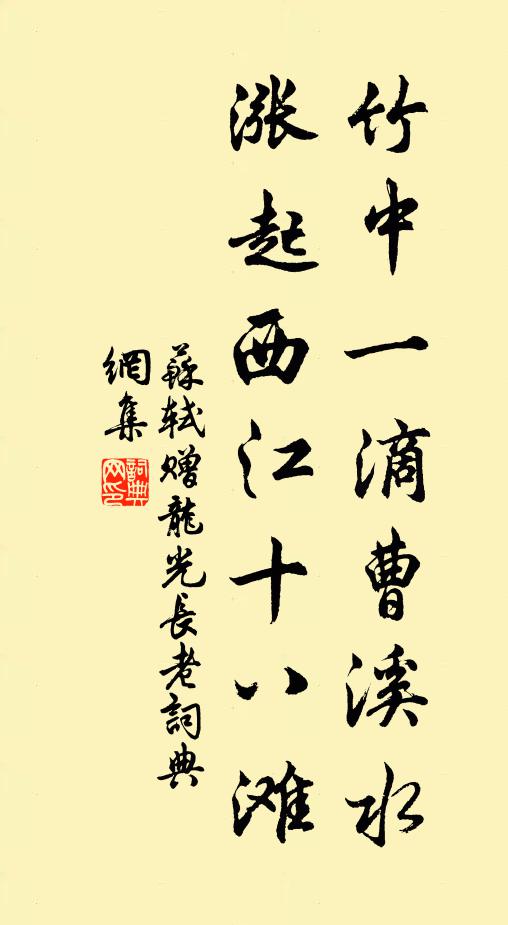 竹中一滴曹溪水
漲起西江十八滩
蘇軾贈龍光長老詞典
網集
詞典
网印